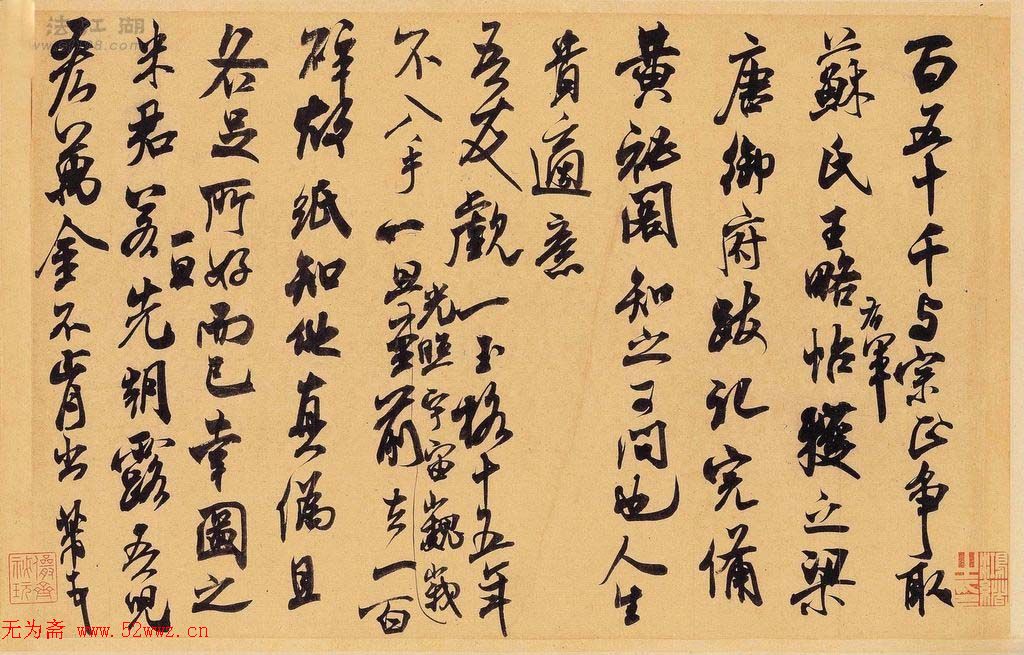 百五十千与宗正争取
蘇氏王略帖右軍獲之梁
唐御府跋記完備
黄秘阁知之可問也人生
貴適意
吾友覷一玉格十五年
不入手一旦光照宇宙巍峩至前去一百
碎故紙知他真偽且
各足所好而已幸圖之
米君若一旦先朝露吾兒
吝萬金不肯出芾頓首
法江湖
无为斋 www.52wwz.cn